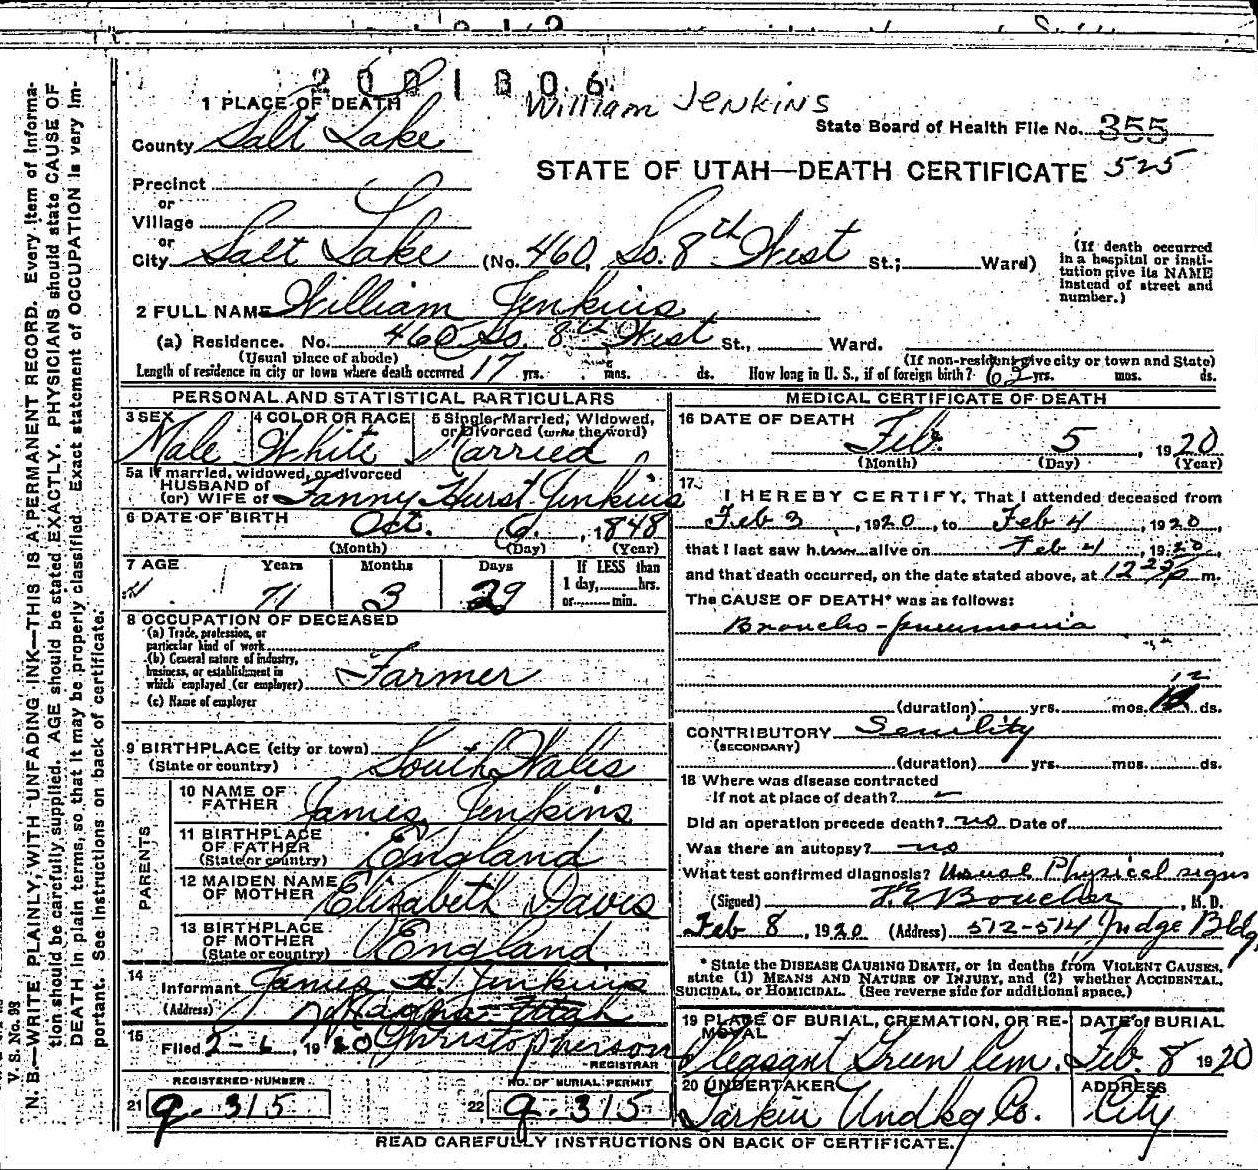 2001806
William Jenkins
1 PLACE OF DEATH
State Board of Health File No. 355
County Salt Lake
STATE OF UTAH—DEATH CERTIFICATE 525
Precinct
or
Village
or
City Salt Lake (No. 460, So. 8th West St.; Ward)
(If death occurred in a hospital or institution give its NAME instead of street and number.)
2 FULL NAME William Jenkins
(a) Residence. No. 460 So. 8th West St., Ward.
(Usual place of abode) (If non-resident give city or town and State)
Length of residence in city or town where death occurred 17 yrs. mos. ds. How long in U. S., if of foreign birth? 62 yrs. mos. ds.
PERSONAL AND STATISTICAL PARTICULARS
3 SEX Male
4 COLOR OR RACE White
5 Single, Married, Widowed, or Divorced (write the word) Married
5a If married, widowed, or divorced
HUSBAND of
(or) WIFE of Fanny Hurst Jenkins
6 DATE OF BIRTH Oct. 6, 1848
(Month) (Day) (Year)
7 AGE Years Months Days If LESS than
1 day, hrs.
or min.
71 3 29
8 OCCUPATION OF DECEASED
(a) Trade, profession, or
particular kind of work
(b) General nature of industry,
business, or establishment in
which employed (or employer) Farmer
(c) Name of employer
9 BIRTHPLACE (city or town)
(State or country) South Wales
PARENTS
10 NAME OF FATHER James Jenkins
11 BIRTHPLACE OF FATHER
(State or country) England
12 MAIDEN NAME OF MOTHER Elizabeth Davis
13 BIRTHPLACE OF MOTHER
(State or country) England
14
Informant James H. Jenkins
(Address) Magna Utah
15
Filed 2-6, 1920 Christopherson
REGISTRAR
REGISTERED NUMBER NO. OF BURIAL PERMIT
21 q. 315 22 q. 315
MEDICAL CERTIFICATE OF DEATH
16 DATE OF DEATH
Feb. 5, 1920
(Month) (Day) (Year)
17. I HEREBY CERTIFY, That I attended deceased from
Feb 3, 1920, to Feb 4, 1920,
that I last saw him alive on Feb 4, 1920,
and that death occurred, on the date stated above, at m.
The CAUSE OF DEATH* was as follows:
Broncho-pneumonia
12
(duration) yrs. mos. ds.
CONTRIBUTORY Senility
(SECONDARY)
(duration) yrs. mos. ds.
18 Where was disease contracted
If not at place of death?
Did an operation precede death? no Date of
Was there an autopsy? no
What test confirmed diagnosis? Usual Physical signs
(Signed) F. E. Boucher, M. D.
Feb 8, 1920 (Address) 512-514 Judge Bldg
* State the DISEASE CAUSING DEATH, or in deaths from VIOLENT CAUSES,
state (1) MEANS AND NATURE OF INJURY, and (2) whether ACCIDENTAL,
SUICIDAL, or HOMICIDAL. (See reverse side for additional space.)
19 PLACE OF BURIAL, CREMATION, OR REMOVAL DATE of BURIAL
Pleasant Green Cem. Feb. 8 1920
20 UNDERTAKER ADDRESS
Larkin Undkg Co. City
READ CAREFULLY INSTRUCTIONS ON BACK OF CERTIFICATE.
V. S. No. 98
N. B.—WRITE PLAINLY, WITH UNFADING INK—THIS IS A PERMANENT RECORD. Every item of Informa-
tion should be carefully supplied. AGE should be stated EXACTLY. PHYSICIANS should state CAUSE OF
DEATH in plain terms, so that it may be properly classified. Exact statement of OCCUPATION is very Im-
portant. See Instructions on back of certificate.